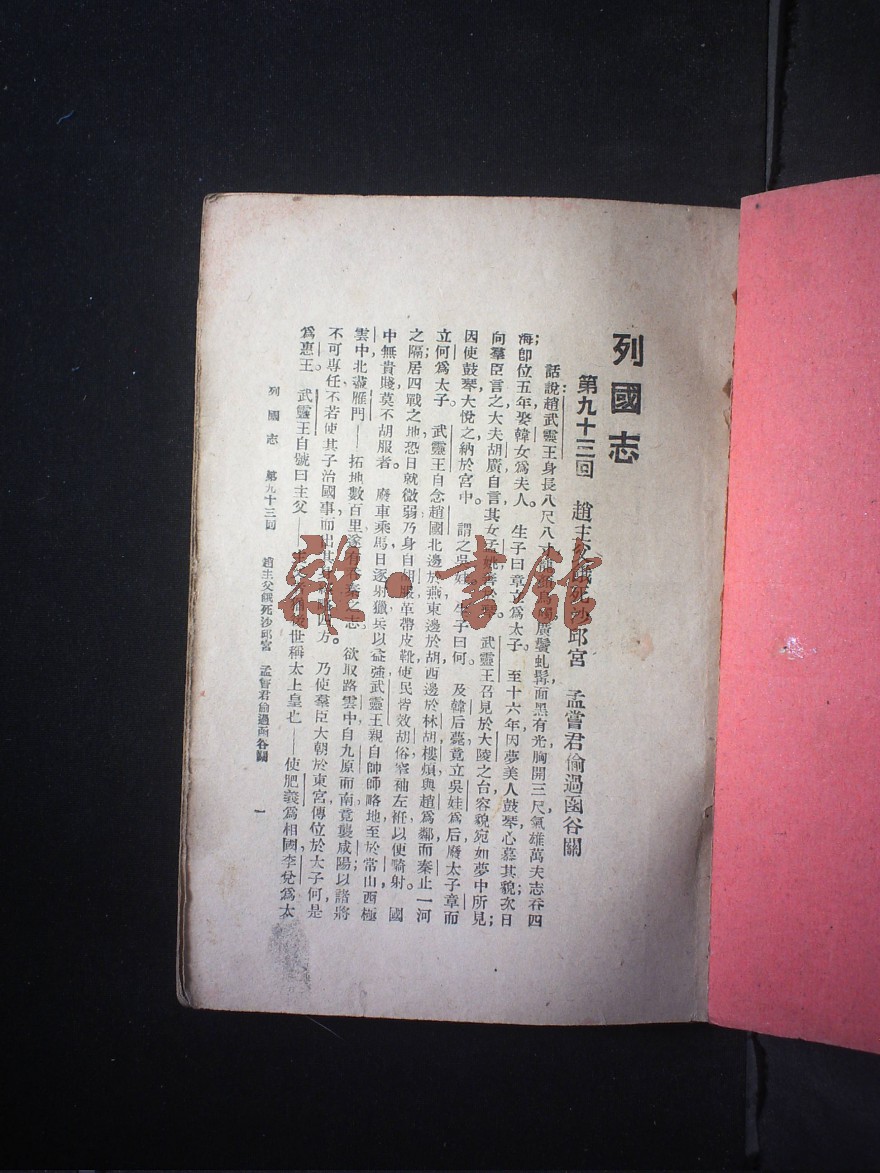 列國志
第九十三回　趙主父餓死沙邱宮　孟嘗君偷過函谷關
話說：趙武靈王身長八尺八寸，龍鬚廣鬢虬髯，面黑有光，胸開三尺，氣雄萬夫，志吞四
海；卽位五年，娶韓女爲夫人。生子曰章，立爲太子。至十六年，因夢美人鼓琴，心慕其貌，次日
向羣臣言之。大夫胡廣自言其女孟姚善琴。武靈王召見於大陵之台，容貌宛如夢中所見；
因使鼓琴，大悅之，納於宮中。謂之吳娃。生子曰何。及韓后薨，竟立吳娃爲后，廢太子章，而
立何爲太子。武靈王自念趙國北邊於燕，東邊於胡，西邊於林胡樓煩，與趙爲鄰，而秦止一河
之隔；居四戰之地，恐日就微弱，乃身自胡服，革帶皮靴，使民皆效胡俗，窄袖左袵，以便騎射。國
中無貴賤，莫不胡服者。廢車乘馬，日逐射獵，兵以益強。武靈王親自帥師略地，至於常山，西極
雲中，北盡雁門——拓地數百里，遂有吞秦之志。欲取路雲中，自九原而南，竟襲咸陽；以諸將
不可專任，不若使其子治國事，而出其身經略四方。乃使羣臣大朝於東宮，傳位於太子何，是
爲惠王。武靈王自號曰主父——主父者，猶後世稱太上皇也——使肥義爲相國，李兌爲太
列國志　第九十三回　趙主父餓死沙邱宮　孟嘗君偷過函谷關　一
雜·書館